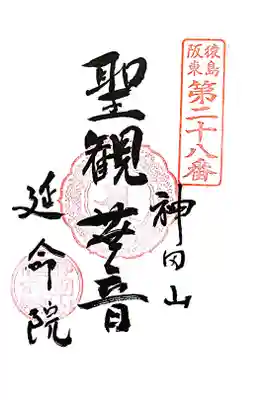 猿島
阪東
第二十八番
聖観世音
神田山
延命院